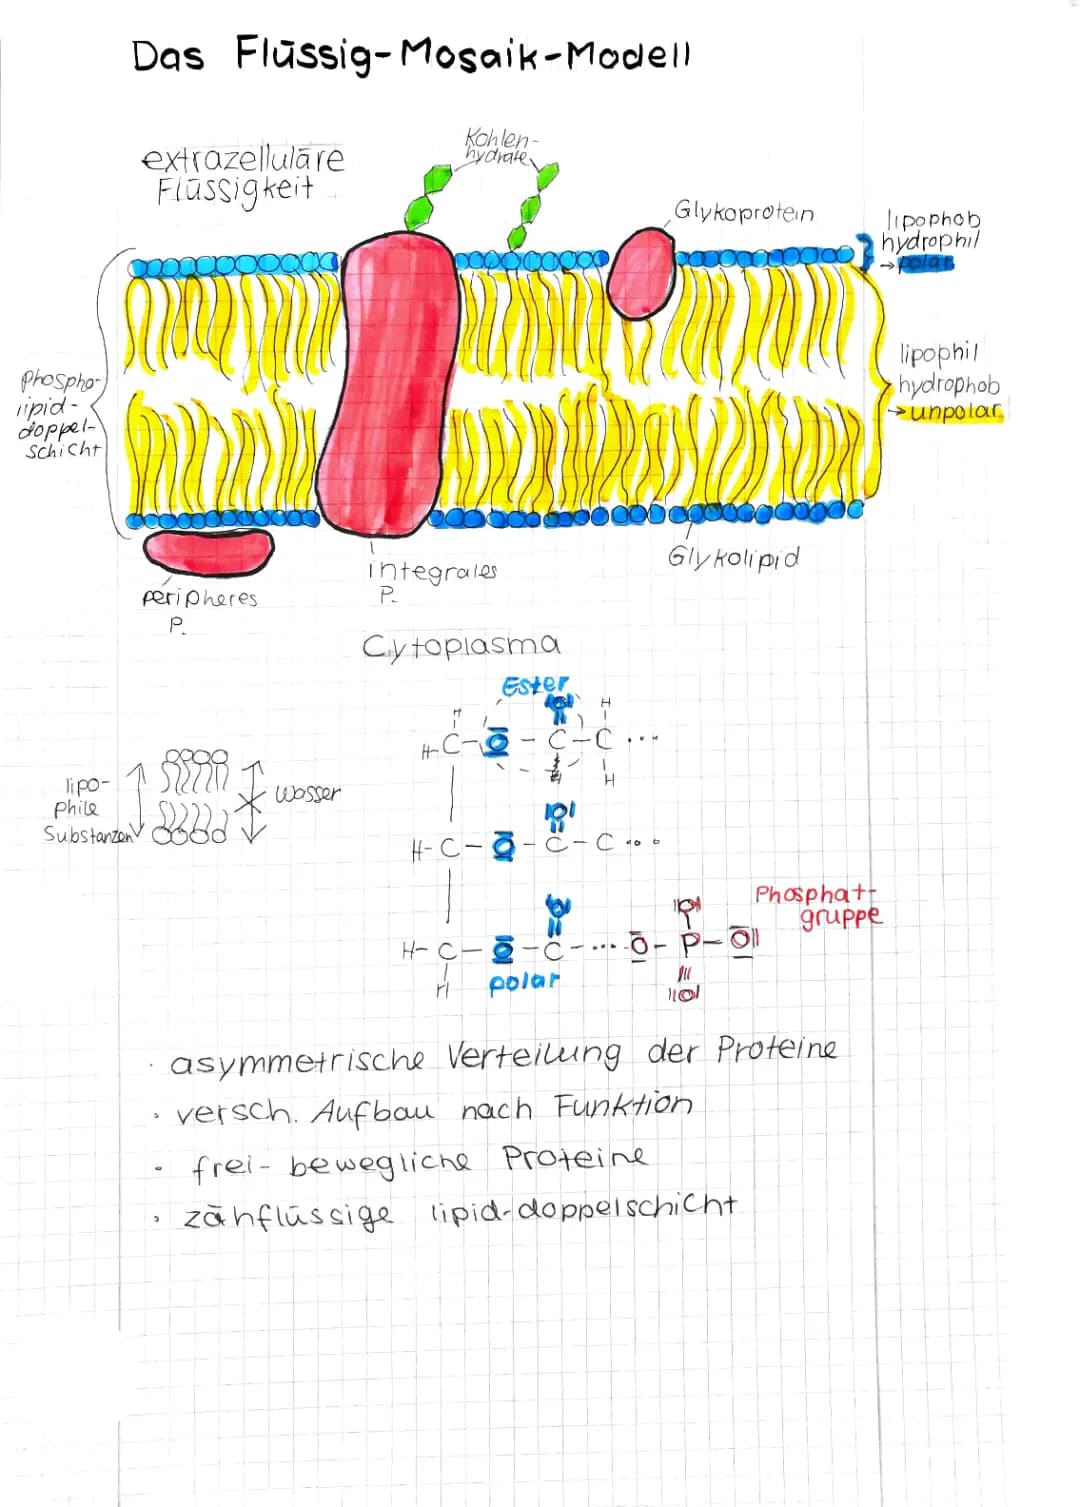 Das Flüssig-Mosaik-Modell
extrazelluläre
Flüssigkeit
Kohlen-
hydrate
Glykoprotein
lipophob
hydrophil
→ polar
Phospho-
lipid-
doppel-
schicht
lipophil
hydrophob
→ unpolar
peripheres
P.
integrales
P.
Glykolipid
Cytoplasma
Ester
H H
H-C-O-C-C...
H
lipo-
phile
Substanzen
Wasser
H-C-O-C-C...
Phosphat-
gruppe
H-C-O-C-...O-P-O
H
polar
O
· asymmetrische Verteilung der Proteine
· versch. Aufbau nach Funktion
· frei-bewegliche Proteine
· zähflüssige lipid-doppelschicht